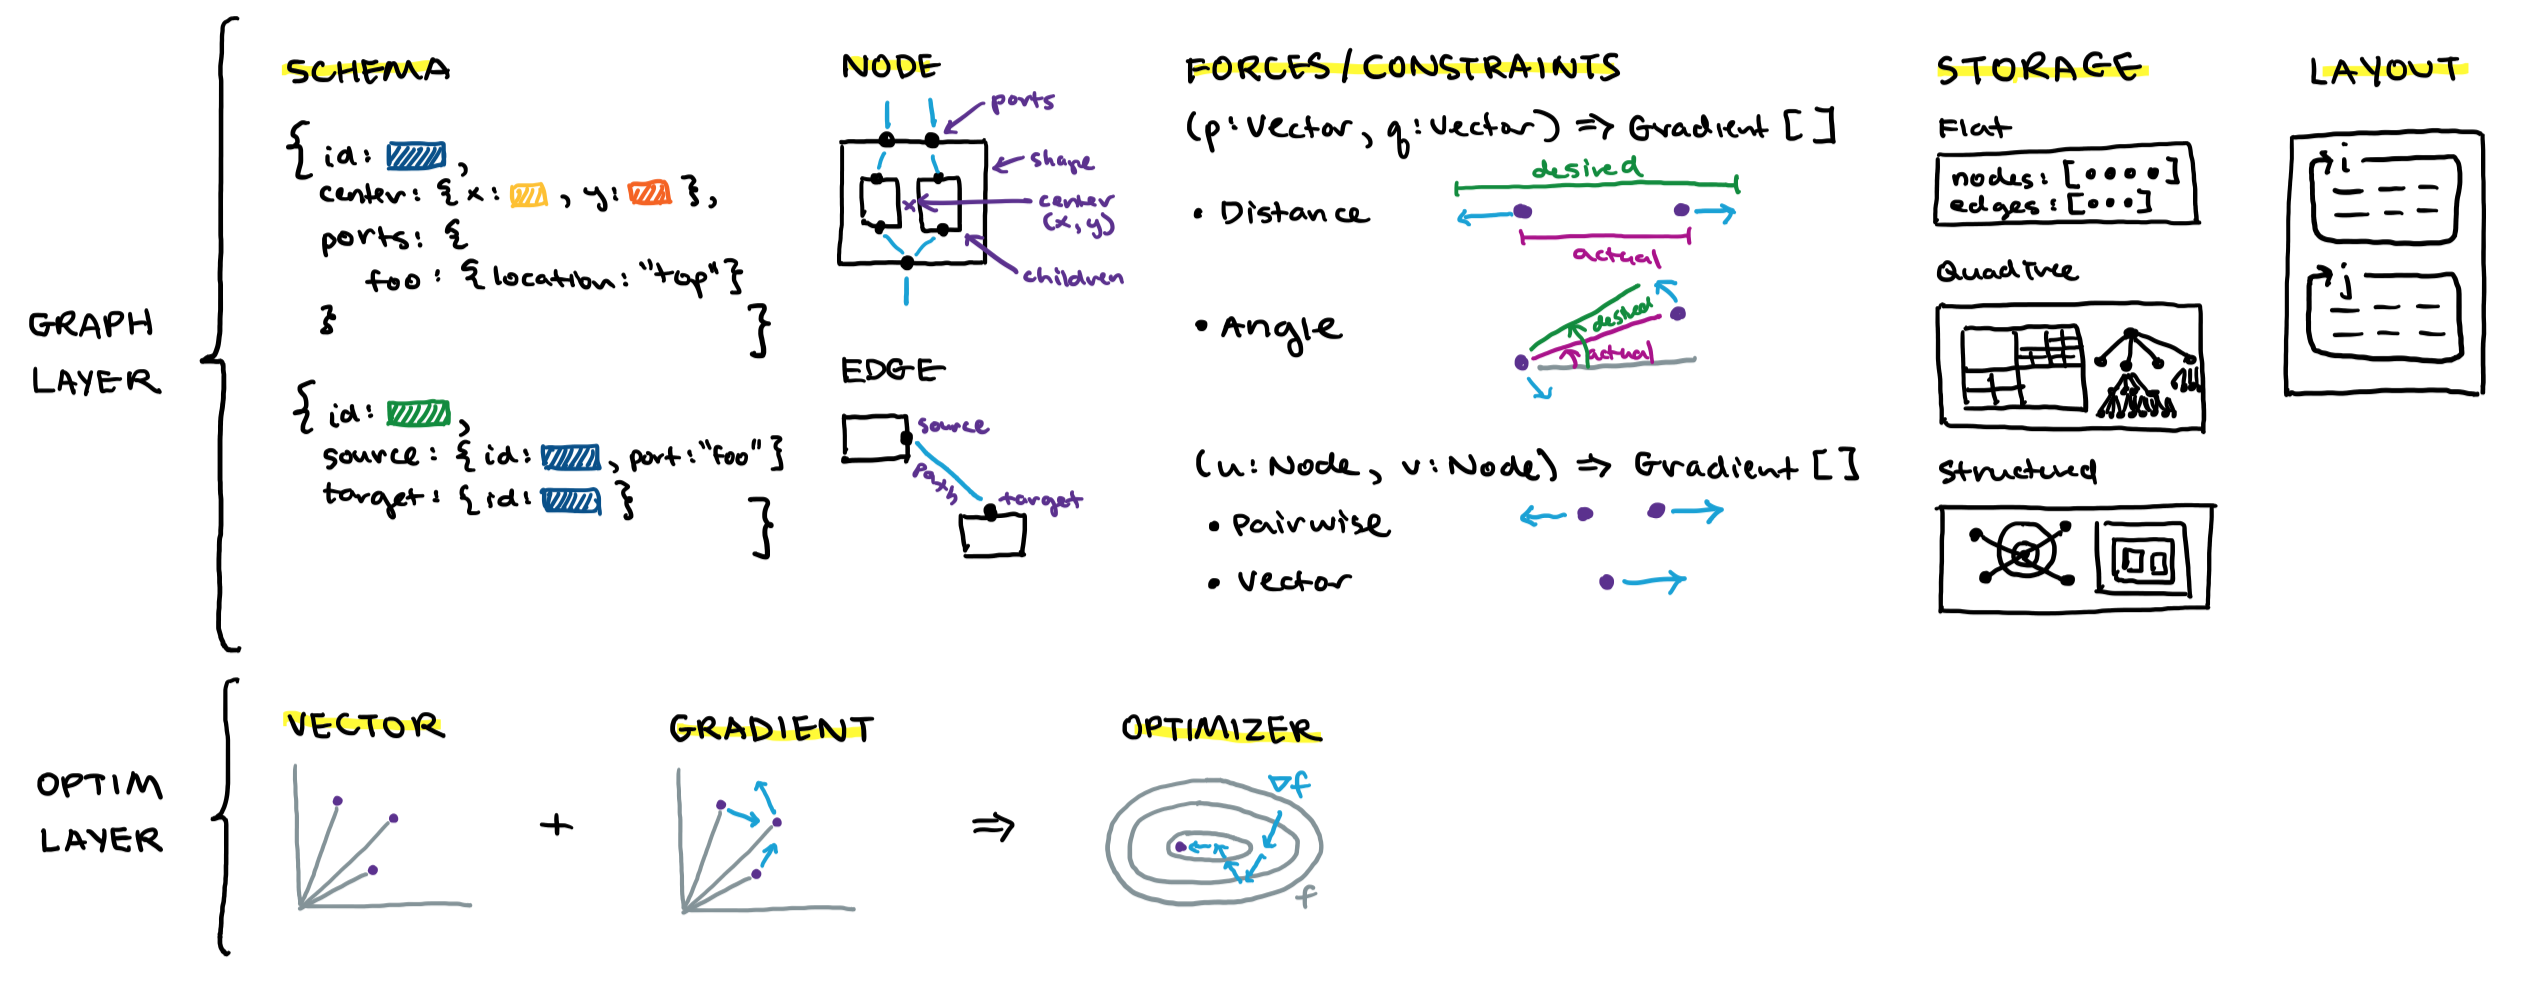 GRAPH
LAYER
SCHEMA
{ id: ,
center: { x: , y: },
ports: {
foo: { location: "top" }
}
}
{ id: ,
source: { id: , port: "foo" }
target: { id: }
}
NODE
ports
shape
center
(x, y)
children
EDGE
source
path
target
FORCES/CONSTRAINTS
(p: Vector, q: Vector) => Gradient []
• Distance
desired
actual
• Angle
desired
actual
(u: Node, v: Node) => Gradient []
• Pairwise
• Vector
STORAGE
Flat
nodes: [••••]
edges: [•••]
Quadtree
Structured
LAYOUT
i
j
OPTIM
LAYER
VECTOR
+
GRADIENT
=>
OPTIMIZER
∇f
f